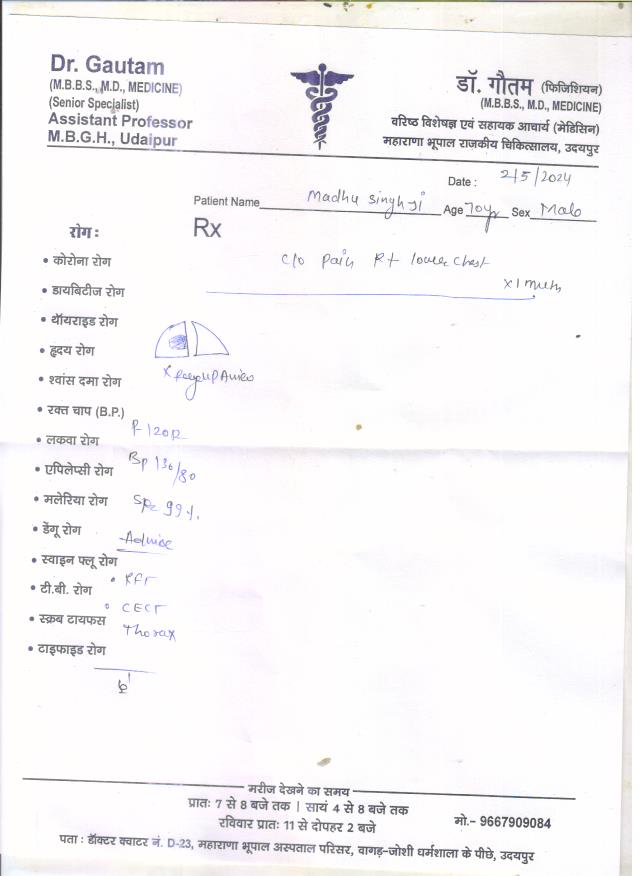 Dr. Gautam
(M.B.B.S., M.D., MEDICINE)
(Senior Specialist)
Assistant Professor
M.B.G.H., Udaipur
डॉ. गौतम (फिजिशियन)
(M.B.B.S., M.D., MEDICINE)
वरिष्ठ विशेषज्ञ एवं सहायक आचार्य (मेडिसिन)
महाराणा भूपाल राजकीय चिकित्सालय, उदयपुर
Date : 2/5/2024
Patient Name Madhu Singh Ji Age 70yr Sex Male
रोग :
Rx
• कोरोना रोग
c/o Pain Rt lower chest
• डायबिटीज रोग
• थॉयराइड रोग
• हृदय रोग
• श्वांस दमा रोग
• रक्त चाप (B.P.)
• लकवा रोग
P-120
• एपिलेप्सी रोग
Bp 130/80
• मलेरिया रोग
99%
• डेंगू रोग
Advice
• स्वाइन फ्लू रोग
• टी.बी. रोग
• RFT
• स्क्रब टायफस
• CECT
Thorax
• टाइफाइड रोग
मरीज देखने का समय
प्रातः 7 से 8 बजे तक | सायं 4 से 8 बजे तक
रविवार प्रातः 11 से दोपहर 2 बजे
मो.- 9667909084
पता : डॉक्टर क्वाटर नं. D-23, महाराणा भूपाल अस्पताल परिसर, वागड़-जोशी धर्मशाला के पीछे, उदयपुर